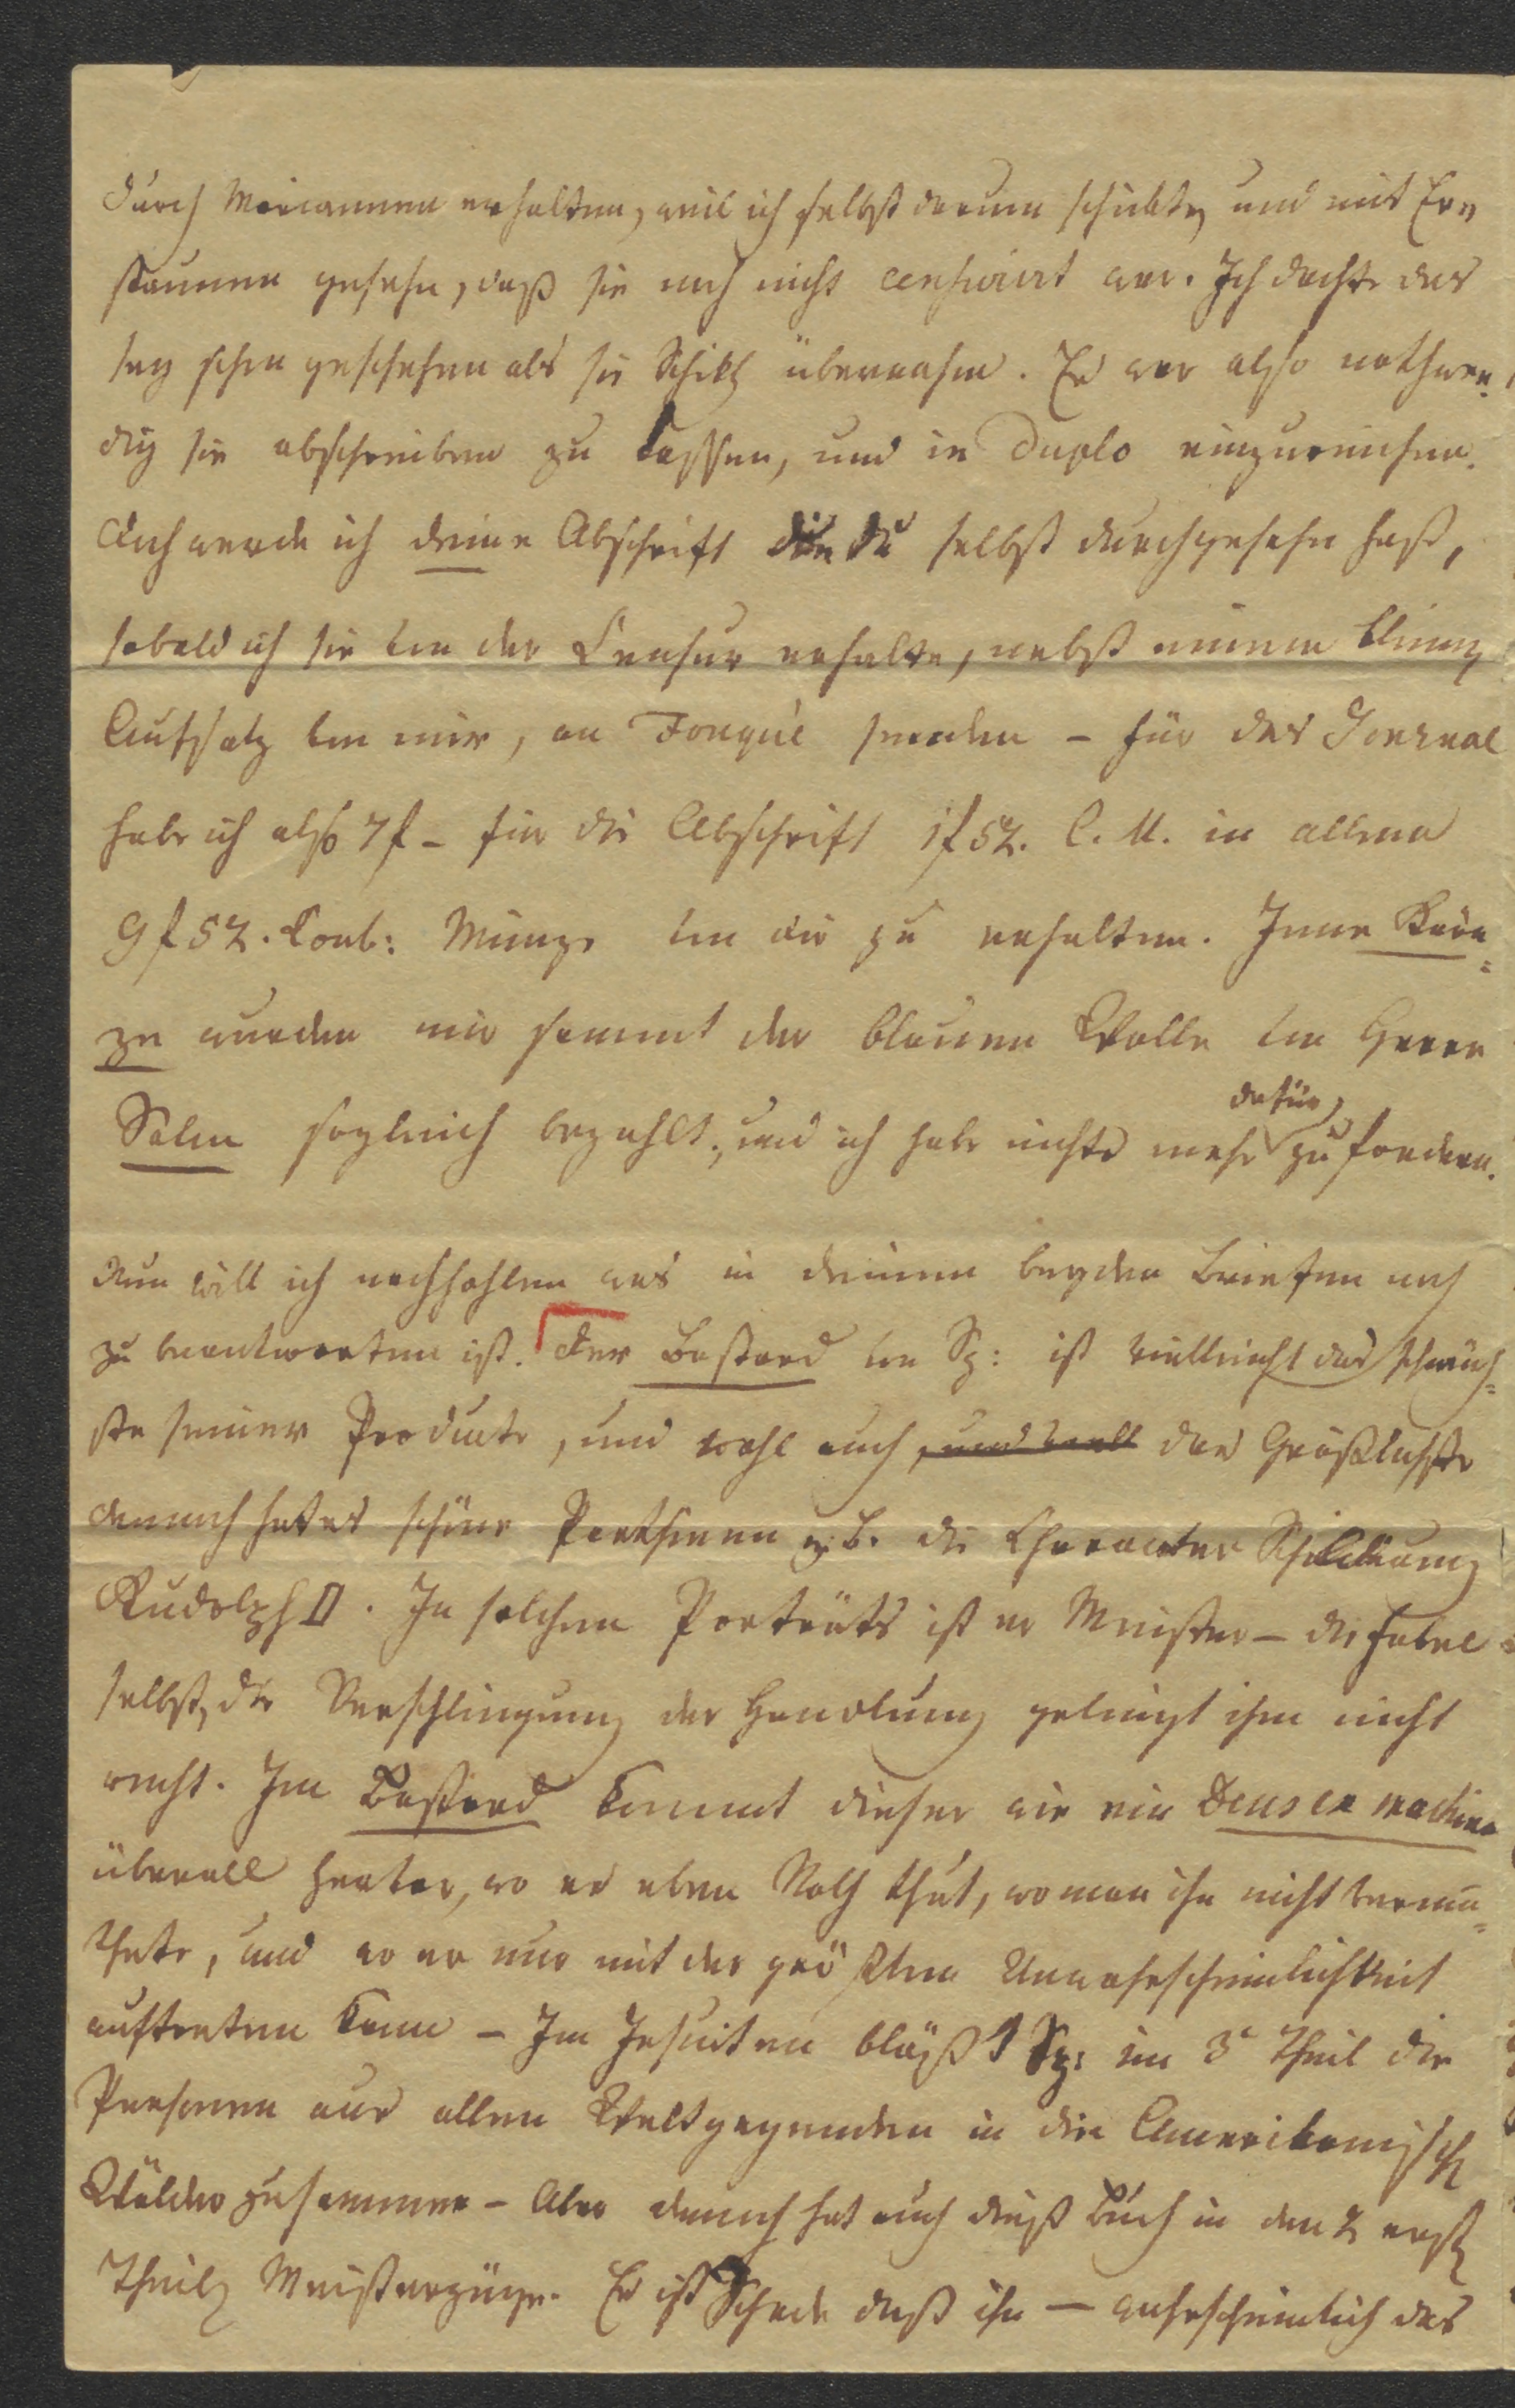 durch Mariannen erhalten, weil ich selbst darum schickte, und mit Er-
staunen gesehn, daß sie noch nicht censuriert war. Ich dachte das
sey schon geschehen als sie Schikh übernahm. Es war also nothwen-
dig sie abschreiben zu lassen, und in Duplo einzureichen.
Auch werde ich deine Abschrift die du selbst durchgesehn hast,
sobald ich sie von der Censur erhalte, nebst einem kleinen
Aufsatz von mir, an Fouqué senden – für das Journal
habe ich also 7 f – für die Abschrift 1 f 52. C. M. in allem
9 f 52. Conv: Münze von dir zu erhalten. Jene Krän=
ze wurden mir sammt der blauen Wolle von Herrn
Salm sogleich bezahlt, und ich habe nichts mehr dafür zu fordern.
Nun will ich nachhohlen was in deinen beyden Briefen noch
zu beantworten ist. Der Bastard von Sp: ist vielleicht das schwäch=
ste seiner Producte, und wohl auch, und wohl das Gräßlichste
dennoch hat es schöne Parthieen z. B. die Character Schilderung
Rudolph II. In solchen Porträts ist er Meister – die Fabel
selbst, die Verschlingung der Handlung gelingt ihm nicht
recht. Im Bastard kommt dieser wie ein Deus ex machina
überall hervor, wo es eben Noth thut, wo man ihn nicht vermu=
thete, und wo er nur mit der größten Unwahrscheinlichkeit
auftreten kann – Im Jesuiten bläßt Sp: im 3t Theil die
Personen aus allen Weltgegenden in die Amerikanischen
Wälder zusammen – Aber dennoch hat auch dieß Buch in den 2 ersten
Theilen Meisterzüge. Es ist Schade daß ihn – wahrscheinlich das